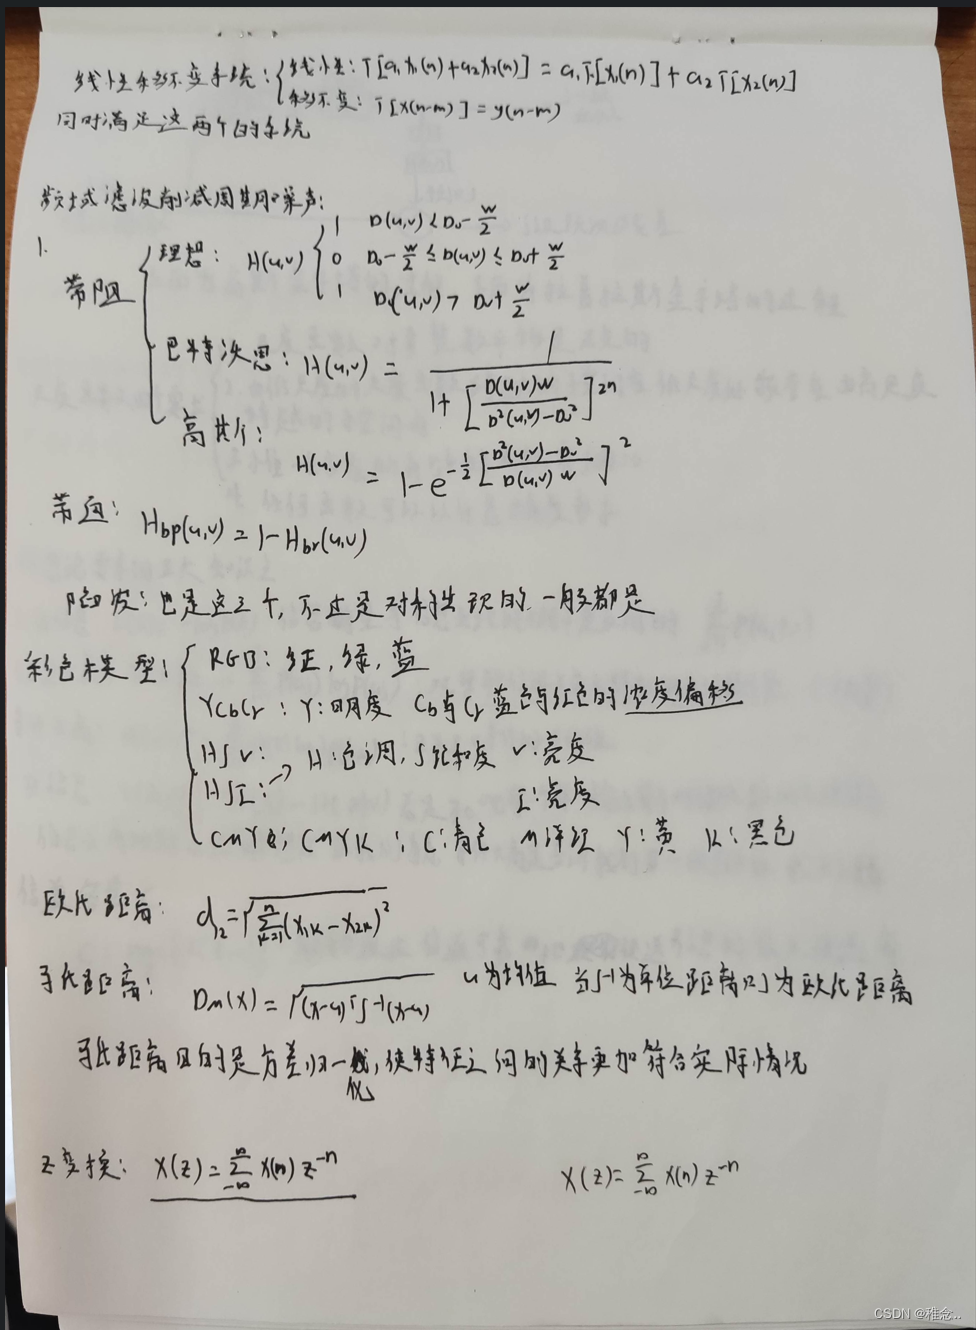 线性移不变系统：{线性：T[a₁x₁(n)+a₂x₂(n)] = a₁T[x₁(n)] + a₂T[x₂(n)]
移不变：T[x(n-m)] = y(n-m)
同时满足这两个的系统
频域滤波削减周期噪声：
1.
带阻 { 理想： H(u,v) { 1 D(u,v) < D₀ - W/2
0 D₀ - W/2 ≤ D(u,v) ≤ D₀ + W/2
1 D(u,v) > D₀ + W/2
巴特沃思： H(u,v) = 1 / (1 + [D(u,v)W / (D²(u,v)-D₀²)]²ⁿ)
高斯： H(u,v) = 1 - e^(-1/2 [(D²(u,v)-D₀²) / (D(u,v) W)]²)
带通： Hbp(u,v) = 1 - Hbr(u,v)
陷波：也是这三个，不过是对称出现的 一般都是
彩色模型：{ RGB：红，绿，蓝
YCbCr：Y：明度 Cb与Cr 蓝色与红色的浓度偏移
HSV： H：色调，S饱和度 V：亮度
HSI：→ I：亮度
CMY; CMYK：C：青色 M洋红 Y：黄 K：黑色
欧氏距离： d₁₂ = √(∑ₖ₌₁ⁿ (x₁ₖ - x₂ₖ)²)
马氏距离： Dm(x) = √((x-u)ᵀ S⁻¹ (x-u)) u为均值 当S⁻¹为单位距离则为欧氏距离
马氏距离目的是方差归一化，使特征之间的关系更加符合实际情况
Z变换： X(z) = ∑₋∞^∞ x(n) z⁻ⁿ X(z) = ∑₋∞^∞ x(n) z⁻ⁿ
CSDN @稚念..